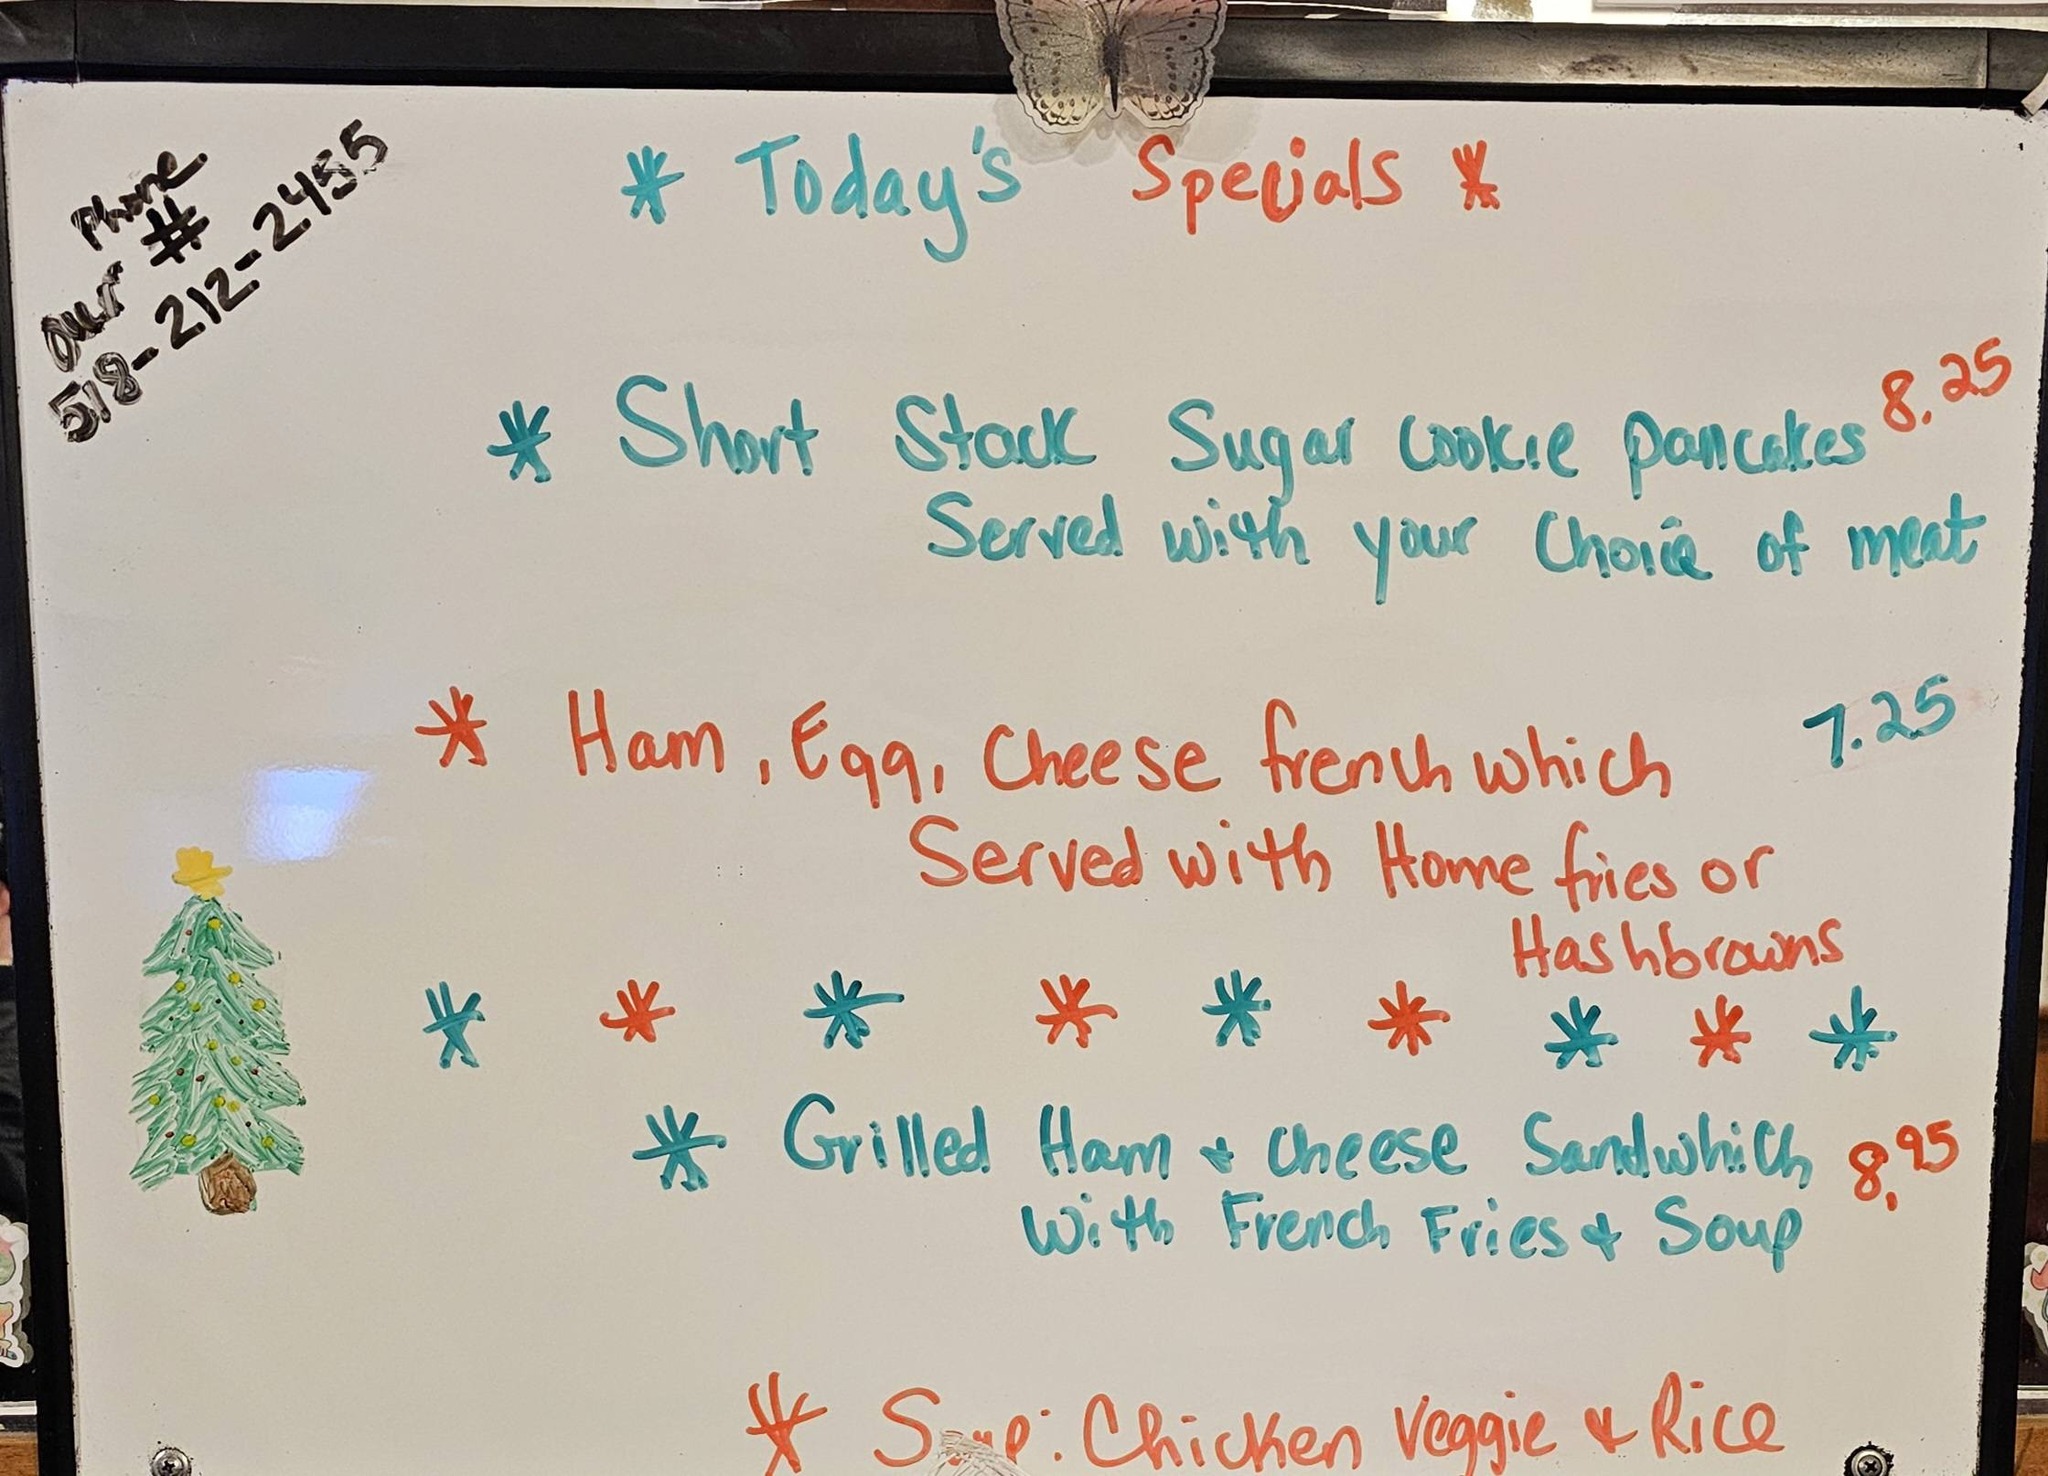 Phone
Our #
518-212-2455
* Today's Specials *
* Short Stack Sugar Cookie pancakes 8.25
Served with your Choice of meat
* Ham, Egg, Cheese french which 7.25
Served with Home fries or
Hashbrowns
* * * * * * * * *
* Grilled Ham & Cheese Sandwhich 8.95
With French Fries & Soup
* Soup: Chicken Veggie & Rice